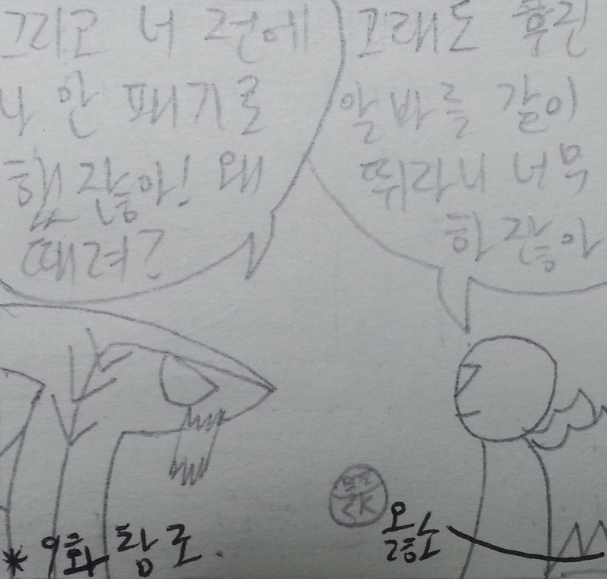 그리고 너 전에
나 안 패기로
했잖아! 왜
때려?
그래도 후진
알바를 같이
뛰라니 너무
하잖아
* 9화 참조.
오
잉